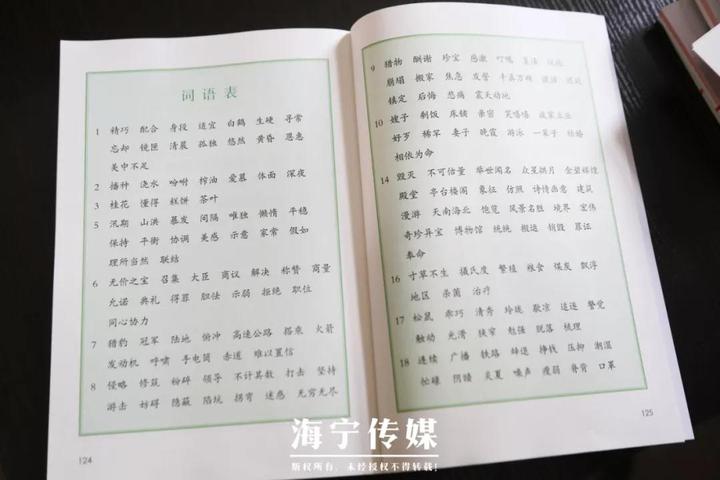 词语表
1 精巧 配合 身段 适宜 白鹤 生硬 寻常
忘却 镜匣 清晨 孤独 悠然 黄昏 恩惠
美中不足
2 播种 浇水 吩咐 榨油 爱慕 体面 深夜
3 桂花 懂得 糕饼 茶叶
5 汛期 山洪 暴发 间隔 唯独 懒惰 平稳
保持 平衡 协调 美感 示意 家常 假如
理所当然 联结
6 无价之宝 召集 大臣 商议 解决 称赞 商量
允诺 典礼 得罪 胆怯 示弱 拒绝 职位
同心协力
7 猎豹 冠军 陆地 俯冲 高速公路 搭乘 火箭
发动机 呼啸 手电筒 赤道 难以置信
8 侵略 修筑 粉碎 领导 不计其数 打击 坚持
游击 妨碍 隐蔽 陷坑 拐弯 迷惑 无穷无尽
124
9 猎物 酬谢 珍宝 感激 叮嘱
崩塌 搬家 焦急 发誓 千真万确
镇定 后悔 悲痛 震天动地
10 嫂子 剩饭 床铺 亲密 笑嘻嘻 成家立业
好歹 稀罕 妻子 晚霞 游泳 一辈子 结婚
相依为命
14 毁灭 不可估量 举世闻名 众星拱月 金碧辉煌
殿堂 亭台楼阁 象征 仿照 诗情画意 建筑
漫游 天南海北 饱览 风景名胜 境界 宏伟
奇珍异宝 博物馆 统统 搬运 销毁 罪证
奉命
16 寸草不生 摄氏度 繁殖 粮食 煤炭 飘浮
地区 杀菌 治疗
17 松鼠 乖巧 清秀 玲珑 歇凉 追逐 警觉
触动 光滑 狭窄 勉强 脱落 梳理
18 连续 广播 铁路 辞退 挣钱 压抑 潮湿
忙碌 阴暗 炎夏 噪声 瘦弱 脊背 口罩
125
海宁传媒
版权所有,未经授权不得转载!